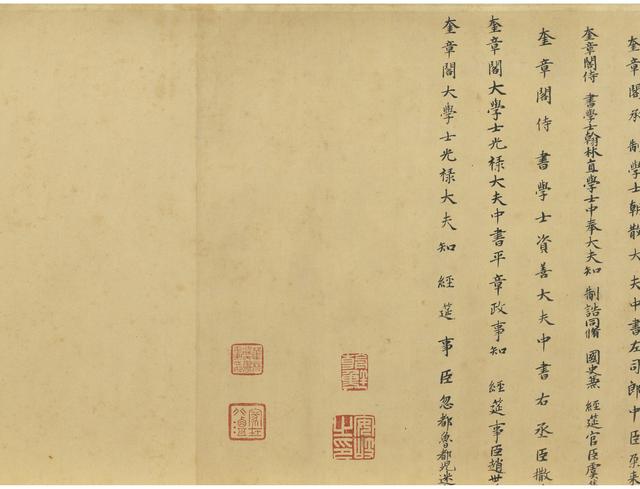 奎章閣承制學士朝散大夫中書左司郎中臣
奎章閣侍書學士翰林直學士中奉大夫知制誥同脩國史兼經筵官臣虞
奎章閣侍書學士資善大夫中書右丞臣撒
奎章閣大學士光祿大夫中書平章政事知經筵事臣趙世
奎章閣大學士光祿大夫知經筵事臣忽都魯都児迷